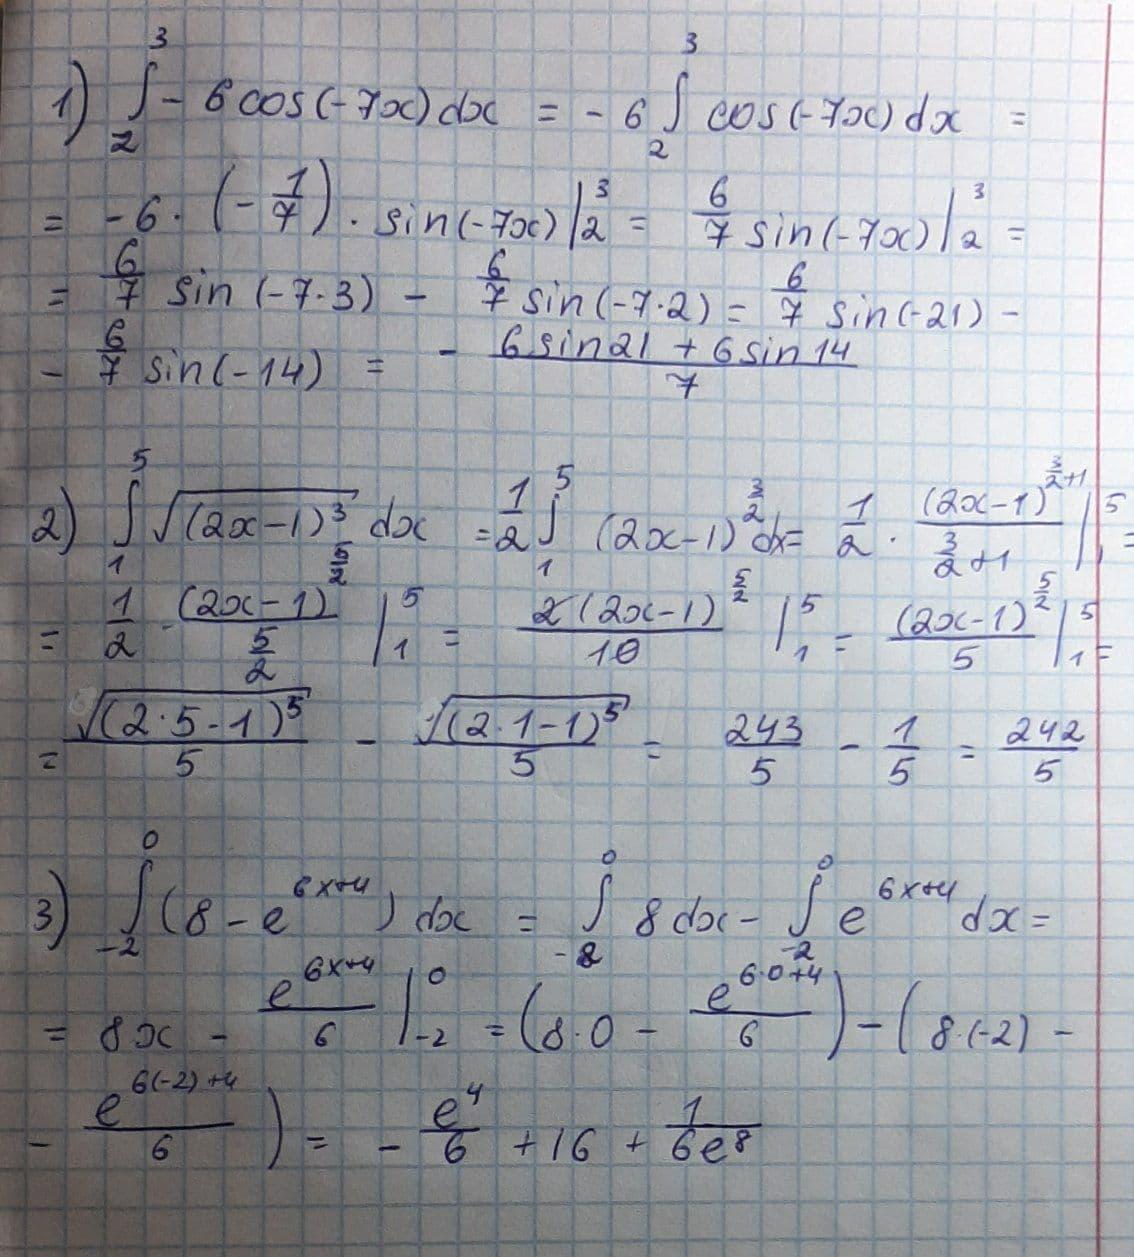 1) ∫₂³ - 6 cos(-7x) dx = - 6 ∫₂³ cos(-7x) dx =
= -6 · (- 1/7) · sin(-7x) |₂³ = 6/7 sin(-7x) |₂³ =
= 6/7 sin (-7·3) - 6/7 sin(-7·2) = 6/7 sin(-21) -
- 6/7 sin(-14) = - (6 sin21 + 6 sin14)/7
2) ∫₁⁵ √((2x-1)³) dx = 1/2 ∫₁⁵ (2x-1)^(3/2) dx = 1/2 · (2x-1)^(3/2+1)/(3/2+1) |₁⁵ =
= 1/2 · (2x-1)^(5/2)/(5/2) |₁⁵ = 2(2x-1)^(5/2)/10 |₁⁵ = (2x-1)^(5/2)/5 |₁⁵ =
= √((2·5-1)⁵)/5 - √((2·1-1)⁵)/5 = 243/5 - 1/5 = 242/5
3) ∫₋₂⁰ (8 - e^(6x+4)) dx = ∫₋₂⁰ 8 dx - ∫₋₂⁰ e^(6x+4) dx =
= 8x - e^(6x+4)/6 |₋₂⁰ = (8·0 - e^(6·0+4)/6) - (8·(-2) -
- e^(6(-2)+4)/6) = - e⁴/6 + 16 + 1/(6e⁸)